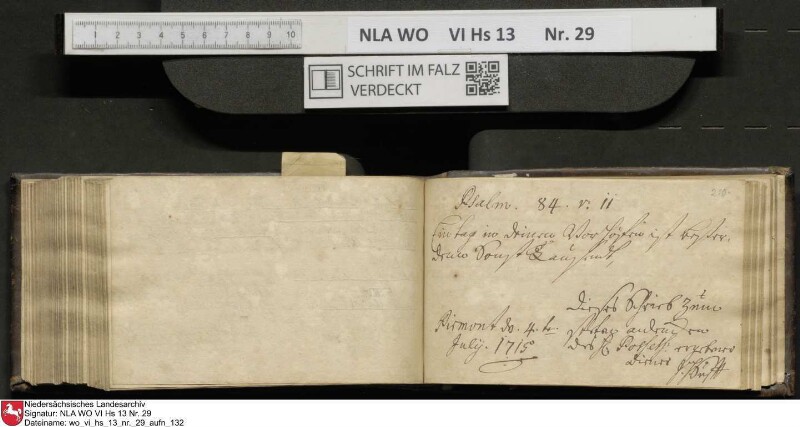 1 2 3 4 5 6 7 8 9 10
NLA WO VI Hs 13 Nr. 29
SCHRIFT IM FALZ
VERDECKT
216.
Psalm. 84. v: 11
Ein tag in deinen Vorhöfen ist besser,
denn Sonst Tausend,
Dieses Schrieb Zum
Pirmont d. 4. t.
July. 1715
des H
ergebner
Diener
Niedersächsisches Landesarchiv
Signatur: NLA WO VI Hs 13 Nr. 29
Dateiname: wo_vi_hs_13_nr._29_aufn_132